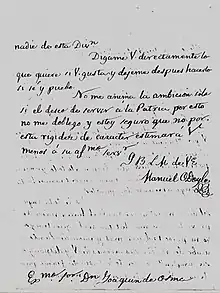 nadie de esta Divn
Digame V directamente lo
que quiere si V. gusta y dejeme despues hacerlo
si yo puedo
No me anima la ambicion solo
si el deseo de servir a la Patria, por esto
no me doblego, y estoy seguro que no por
esta rigidez de caracter estimara V
menos á su afmo servr
Q B L M de VE
Manuel
Exmo Sor Dn Joaquin de Osma